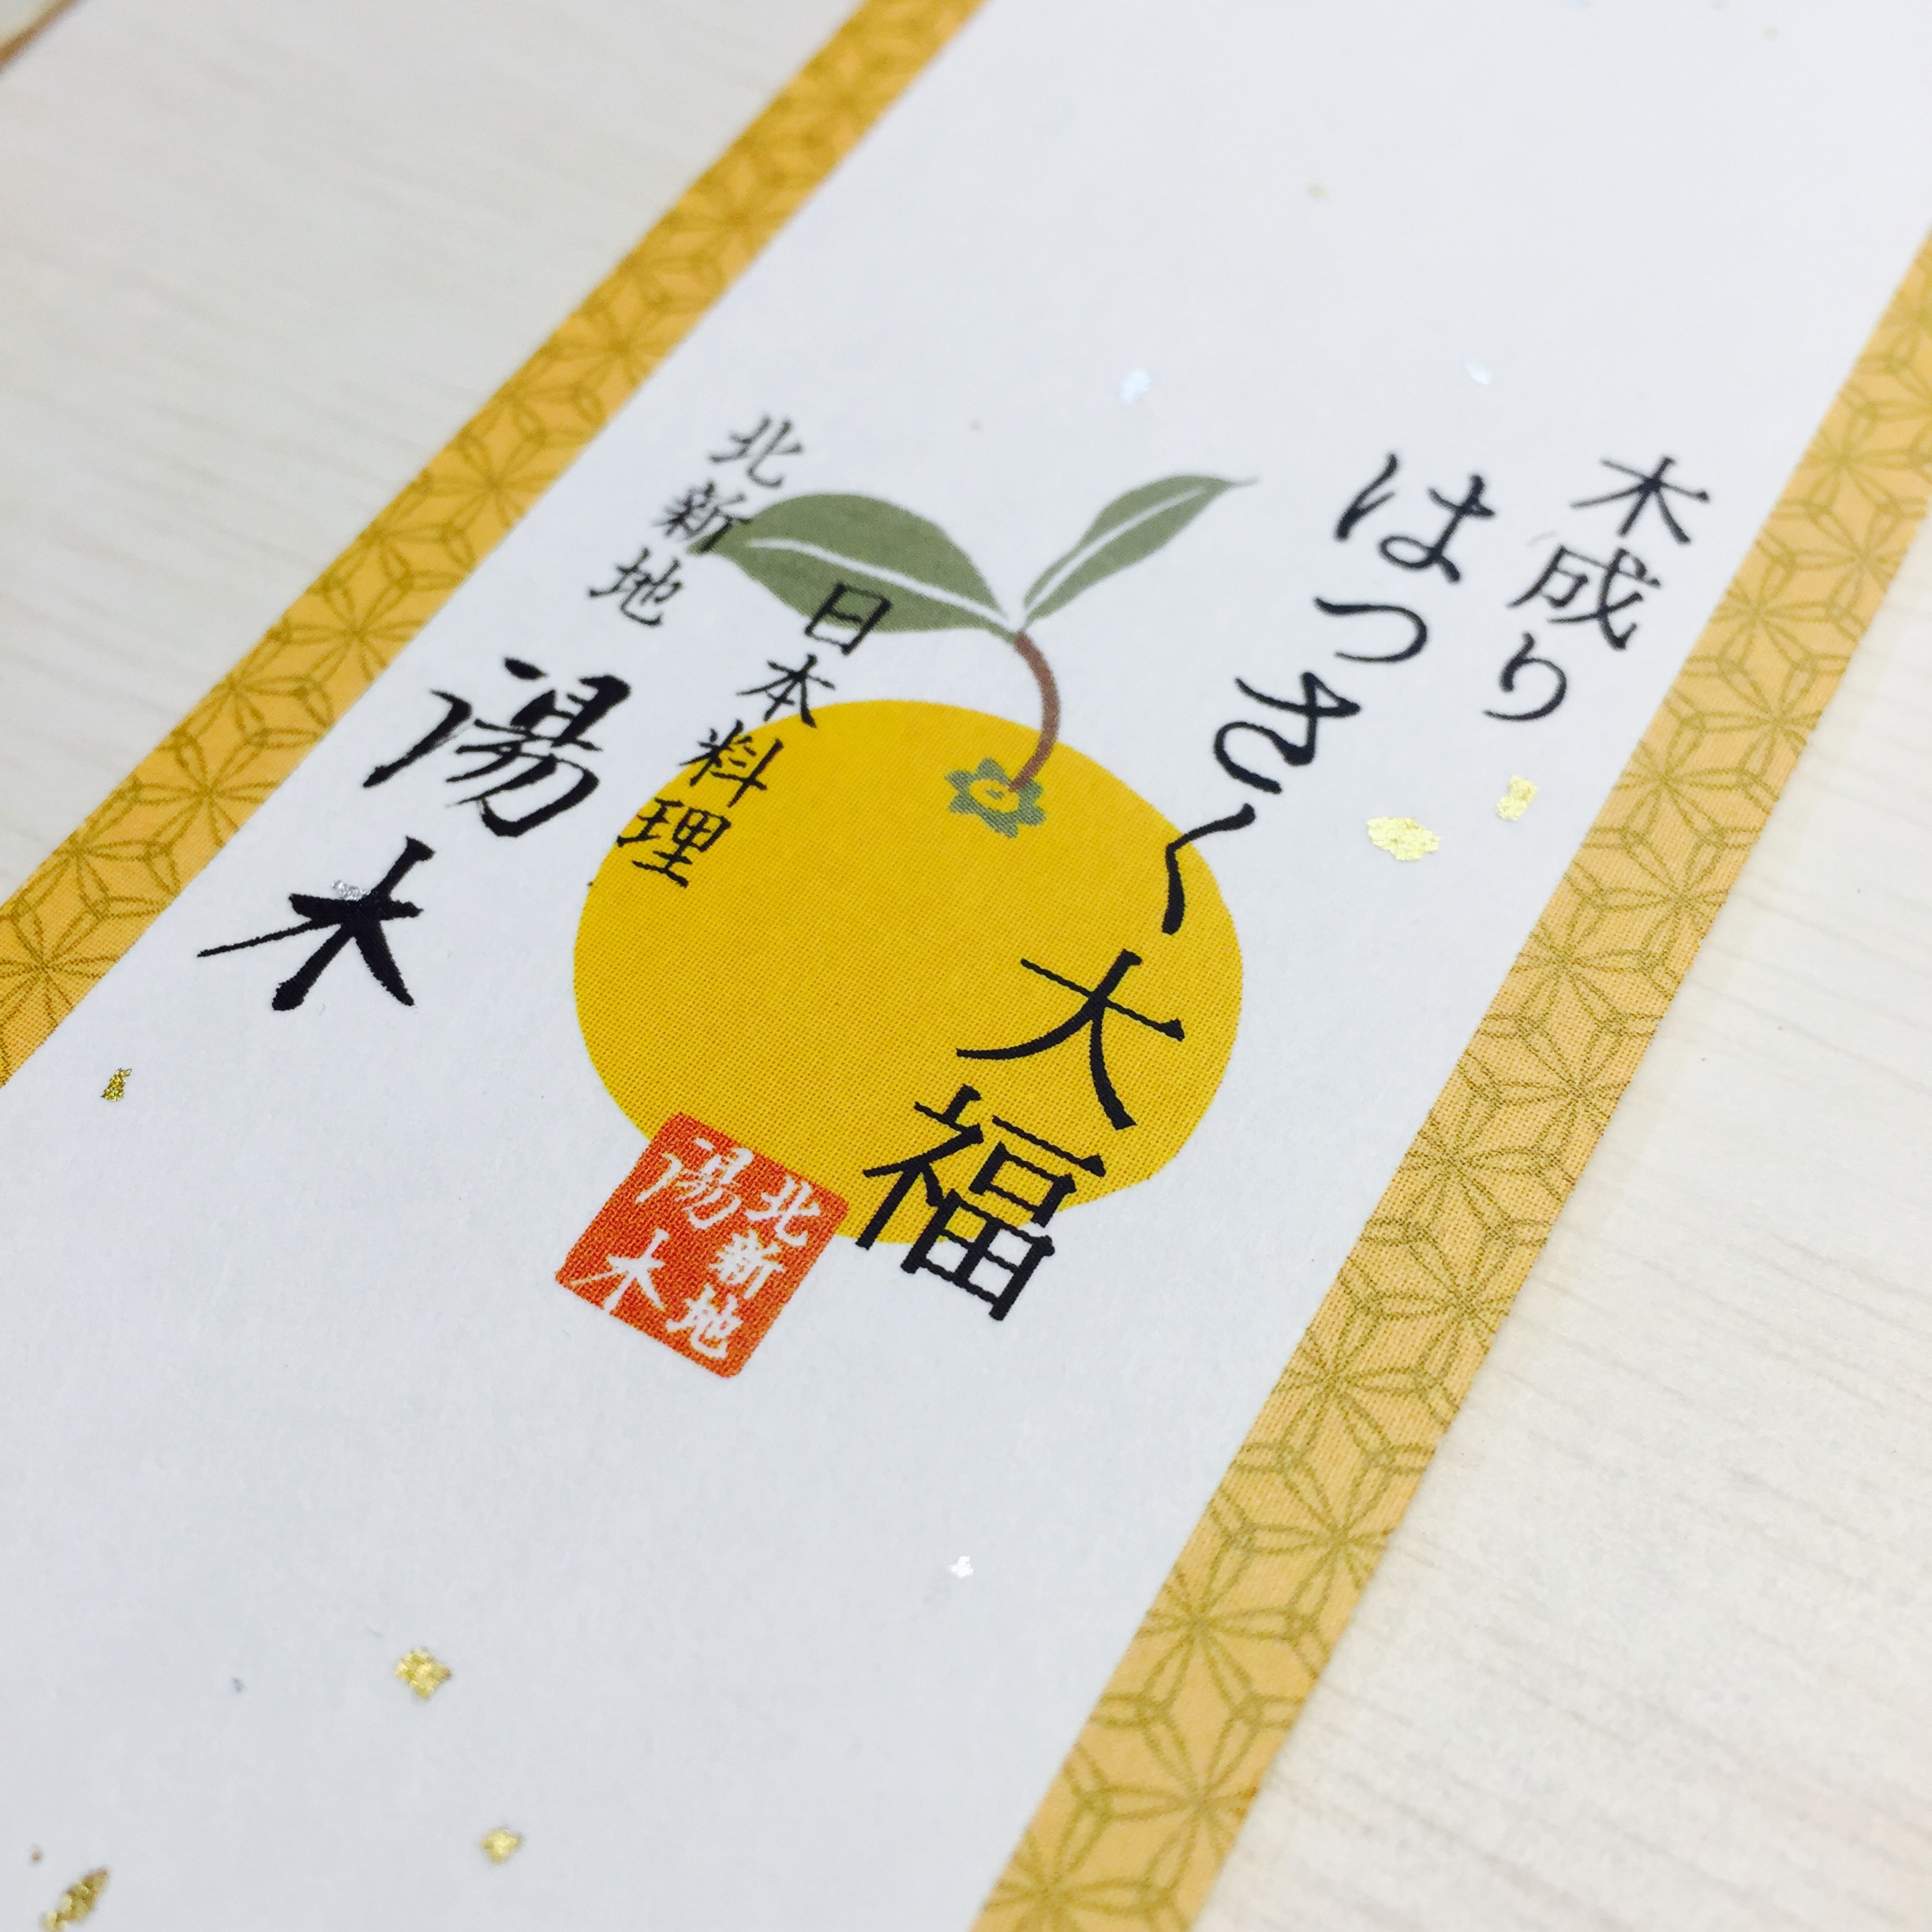 木成り
はっさく大福
日本料理
北新地
湯木
北新地
湯木